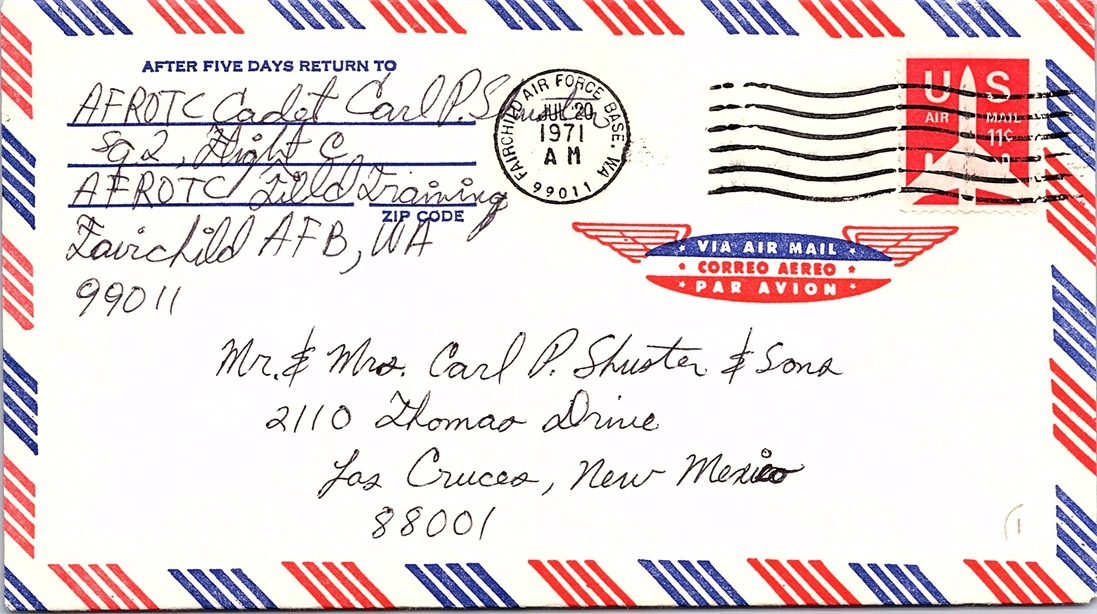 AFTER FIVE DAYS RETURN TO
AFROTC Cadet Carl P. Shuster
Sq 2, Flight C
AFROTC Field Training
ZIP CODE
Fairchild AFB, WA
99011
FAIRCHILD AIR FORCE BASE, WA
JUL 20
1971
AM
99011
US
AIR MAIL
11¢
VIA AIR MAIL
CORREO AEREO
PAR AVION
Mr. & Mrs. Carl P. Shuster & Sons
2110 Thomas Drive
Las Cruces, New Mexico
88001
1